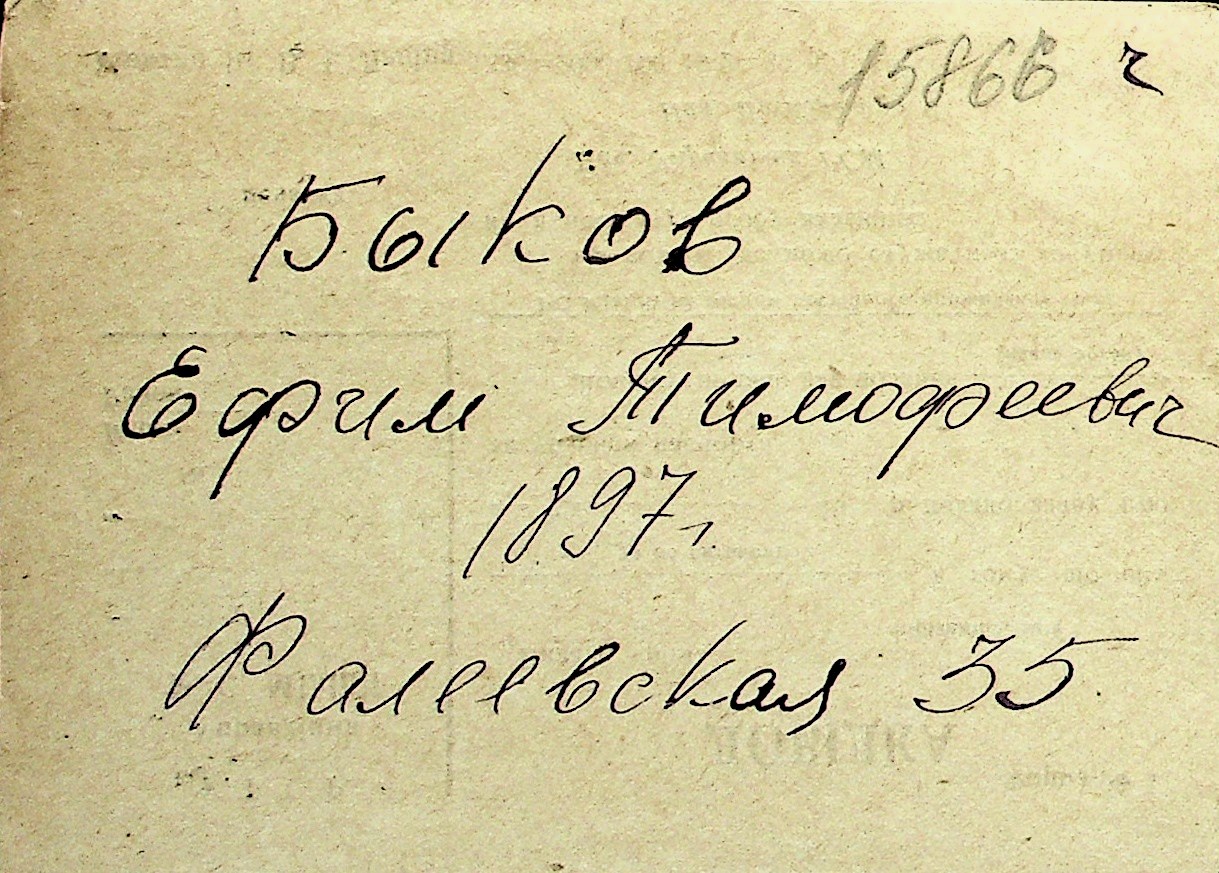 15866 ч
Быков
Ефим Тимофеевич
1897г
Фалеевская 35